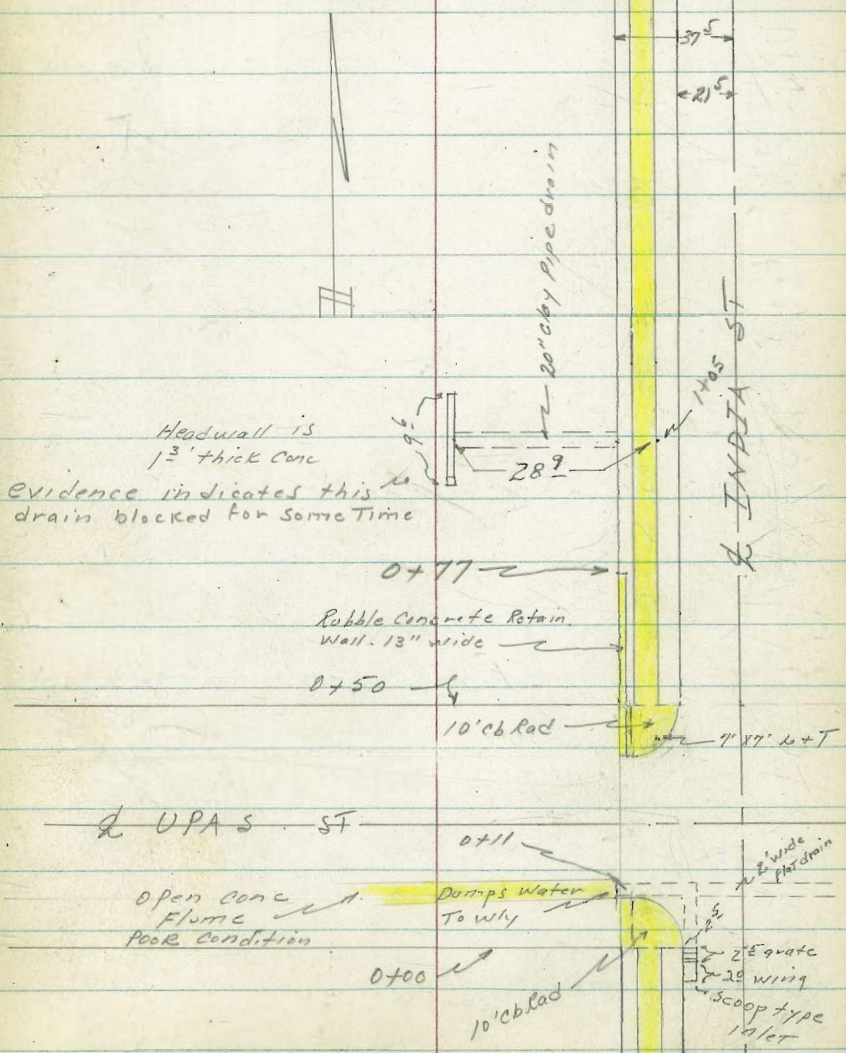 37⁵
21⁵
20" Clay Pipe drain
1+05
℄ INDIA ST
Headwall is
1³' thick Conc
9⁶
28⁹
evidence indicates this
drain blocked for some Time
0+77
Rubble Concrete Retain.
Wall. 13" wide
0+50
10' cb Rad
℄ UPAS ST
0+11
2' wide
flat drain
Open Conc
Flume
Poor Condition
Dumps Water
To Wly
2⁵
grate
2⁰ wing
Scoop type
inlet
0+00
10' cb Rad